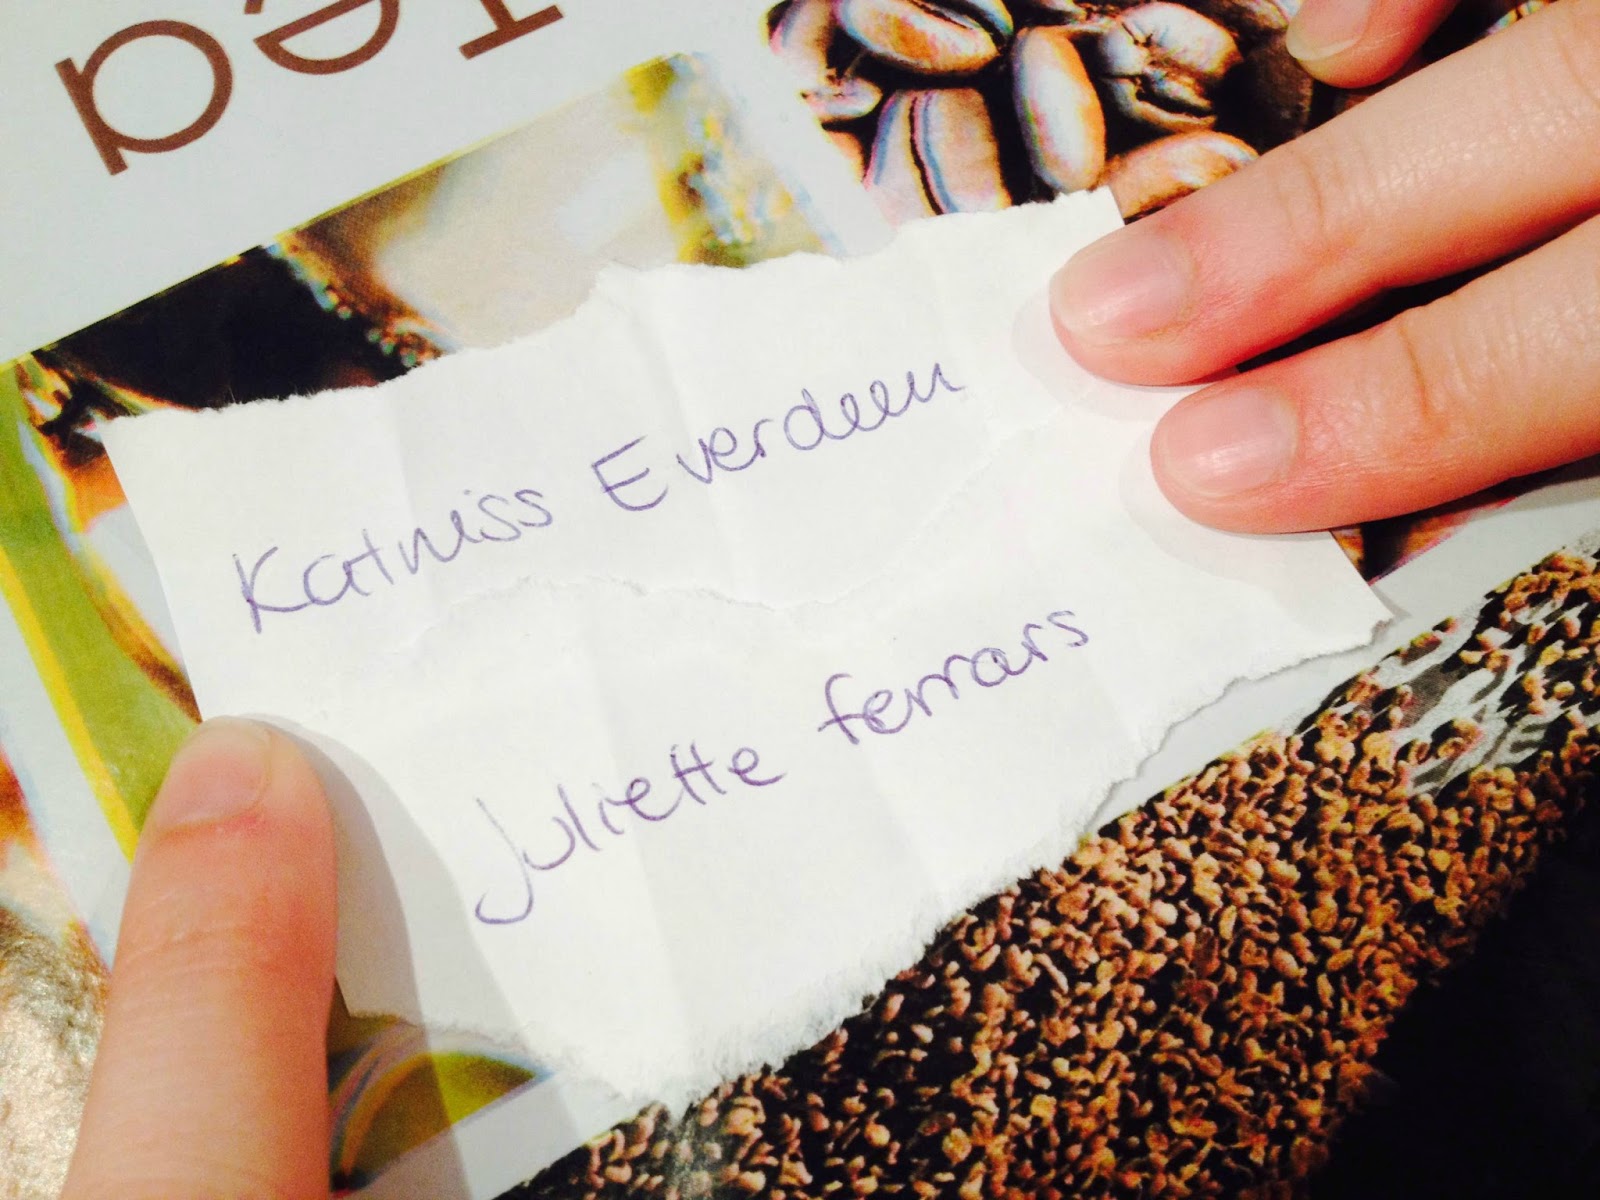 Tea
Katniss Everdeen
Juliette ferrars